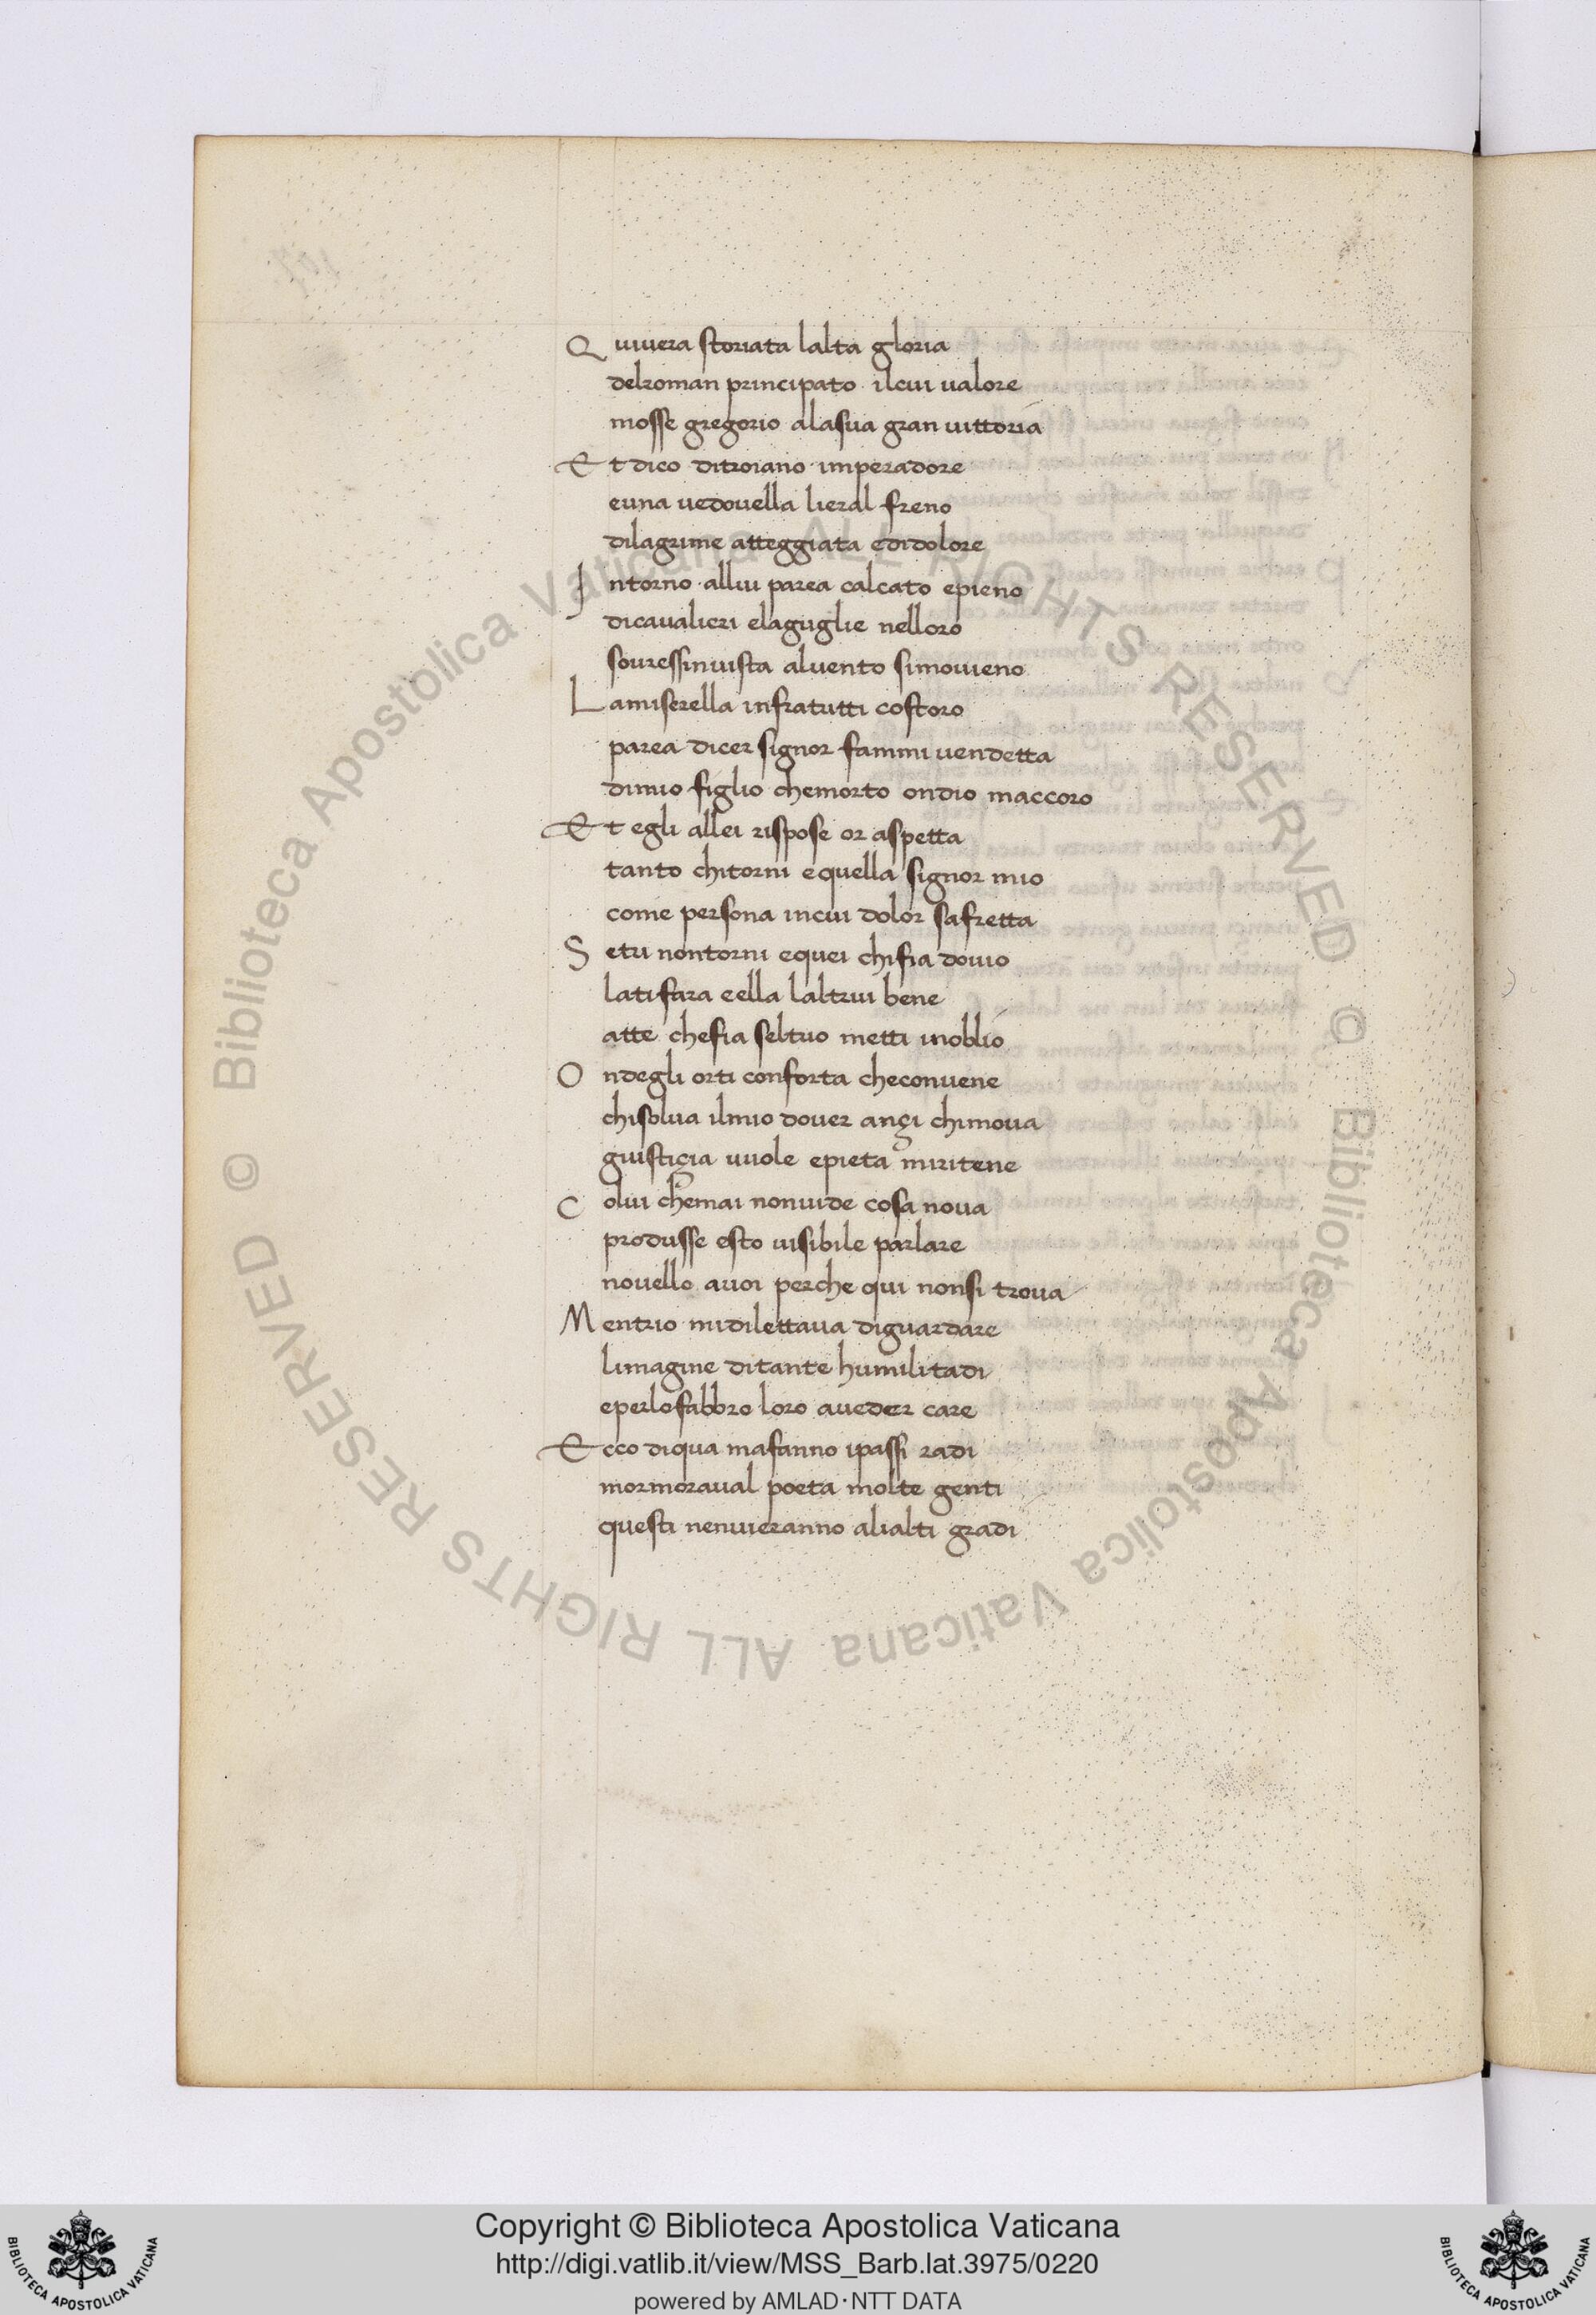 Q uiuera storiata lalta gloria
delroman principato ilcui ualore
mosse gregorio alasua gran uittoria
E t dico ditroiano imperadore
euna uedouella lieral freno
dilagrime atteggiata edidolore
I ntorno allui parea calcato epieno
dicaualieri elaguglie nelloro
souressinuista aluento simouieno
L amiserella infratutti costoro
parea dicer signor fammi uendetta
dimio figlio chemorto ondio maccoro
E t egli allei rispose or aspetta
tanto chitorni equella signor mio
come persona incui dolor safretta
S etu nontorni equei chifia douio
latifara eella laltrui bene
atte chefia seltuo metti inoblio
O ndegli orti conforta checonuene
chisolua ilmio douer ançi chimoua
giustiçia uuole epieta miritene
C olui chemai nonuide cosa noua
produsse esto uisibile parlare
nouello auoi perche qui nonsi troua
M entrio midilettaua diguardare
limagine ditante humilitadi
eperlofabbro loro aueder care
E cco diqua mafanno ipassi radi
mormoraual poeta molte genti
questi nenuieranno alialti gradi
© Biblioteca Apostolica Vaticana ALL RIGHTS RESERVED © Biblioteca Apostolica Vaticana ALL RIGHTS RESERVED
Copyright © Biblioteca Apostolica Vaticana
http://digi.vatlib.it/view/MSS_Barb.lat.3975/0220
powered by AMLAD·NTT DATA
BIBLIOTECA APOSTOLICA VATICANA
BIBLIOTECA APOSTOLICA VATICANA